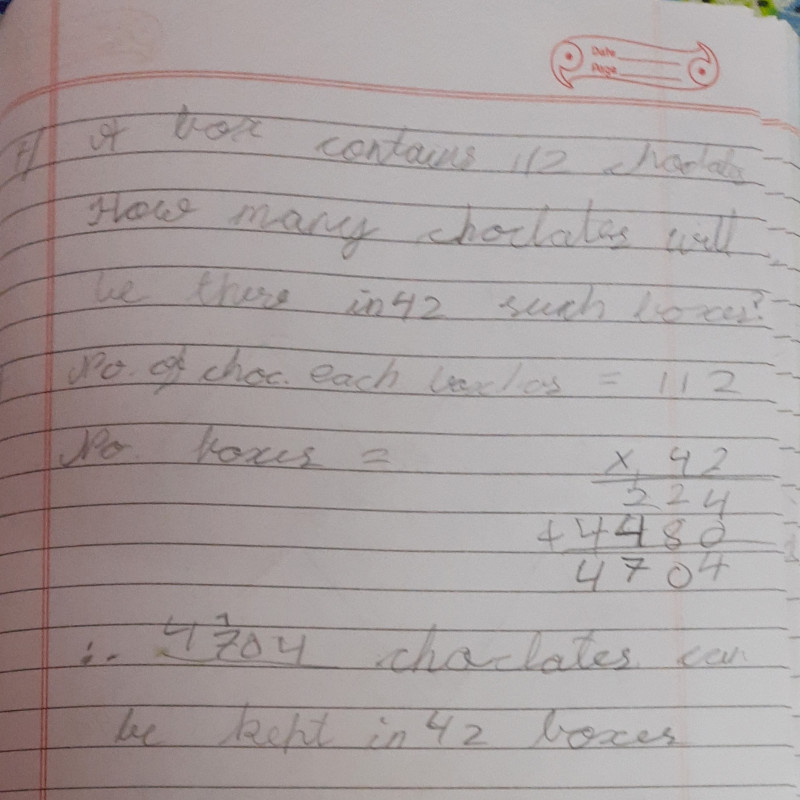 Date
Page
1) A box contains 112 choclate
How many choclates will
be there in 42 such boxes?
No. of choc. each box has = 112
No. boxes = x 42
224
+4480
4704
∴ 4704 choclates can
be kept in 42 boxes